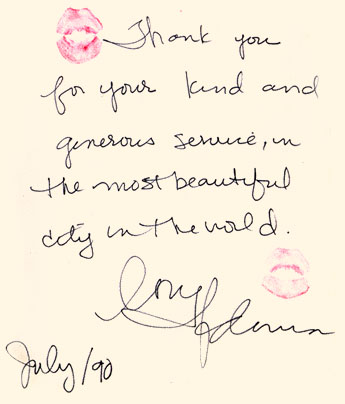 Thank you
for your kind and
generous service, in
the most beautiful
city in the world.
July/90